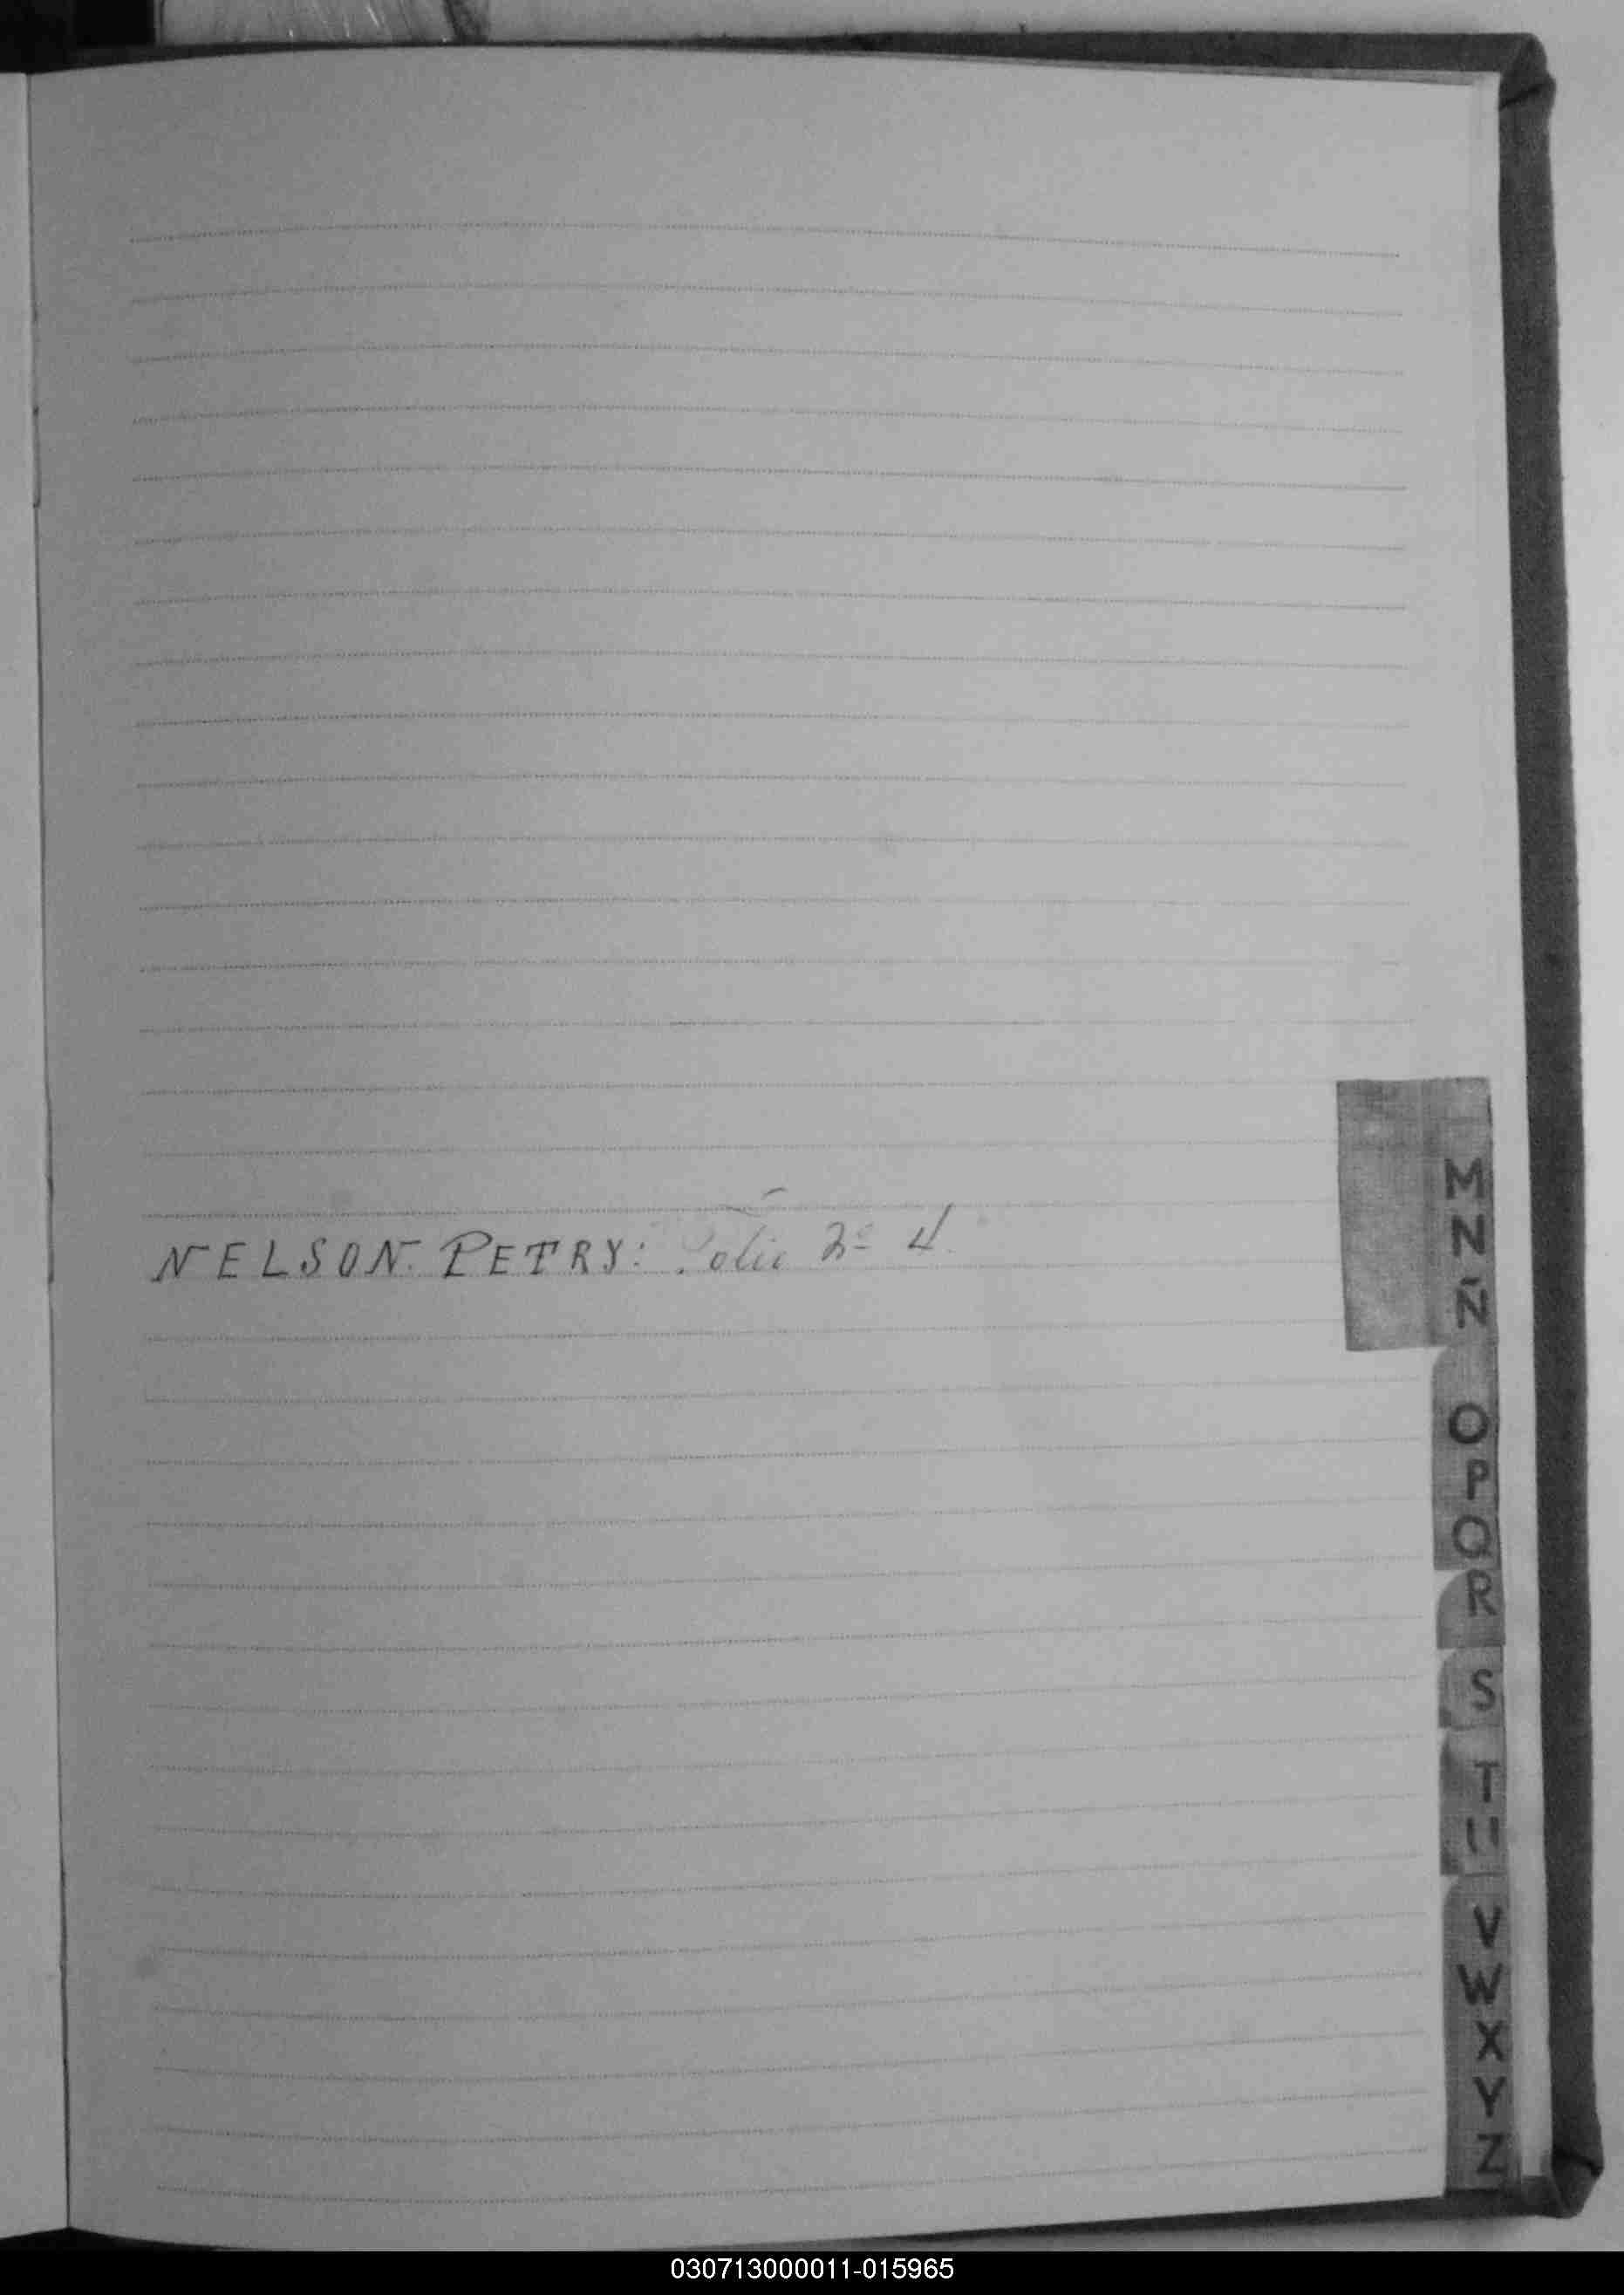 NELSON. PETRY: Folio Nº 4.
M
N
Ñ
O
P
Q
R
S
T
U
V
W
X
Y
Z
030713000011-015965